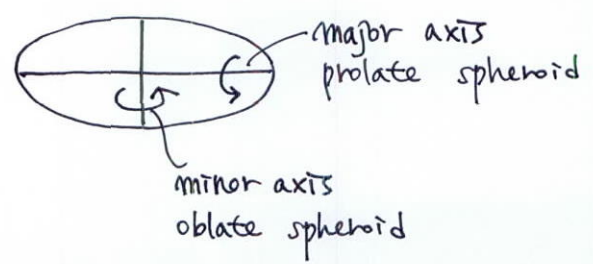 major axis
prolate spheroid
minor axis
oblate spheroid